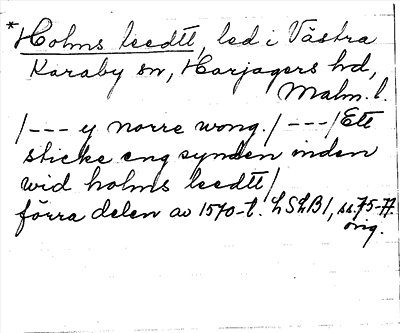 *Holms leedtt, led i Västra
Karaby sn, Harjagers hd,
Malm. l.
/--- y norre wong. / ---/ Ett
sticke eng synden inden
wid holms leedtt/
förra delen av 1570-t. LSLB1, ss. 75-77.
orig.